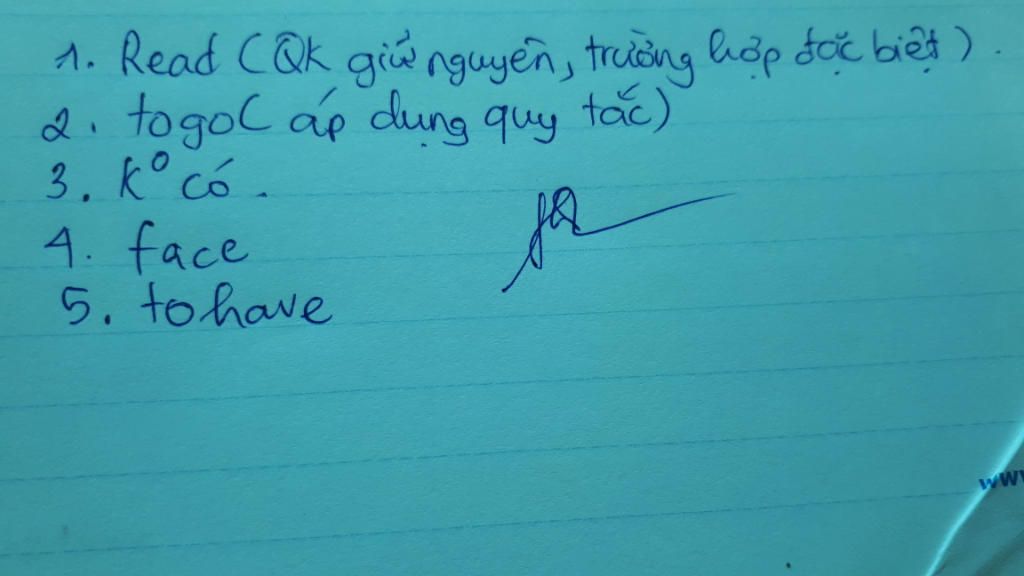 1. Read (QK giữ nguyên, trường hợp đặc biệt).
2. to go (áp dụng quy tắc)
3. K° có.
4. face
5. to have